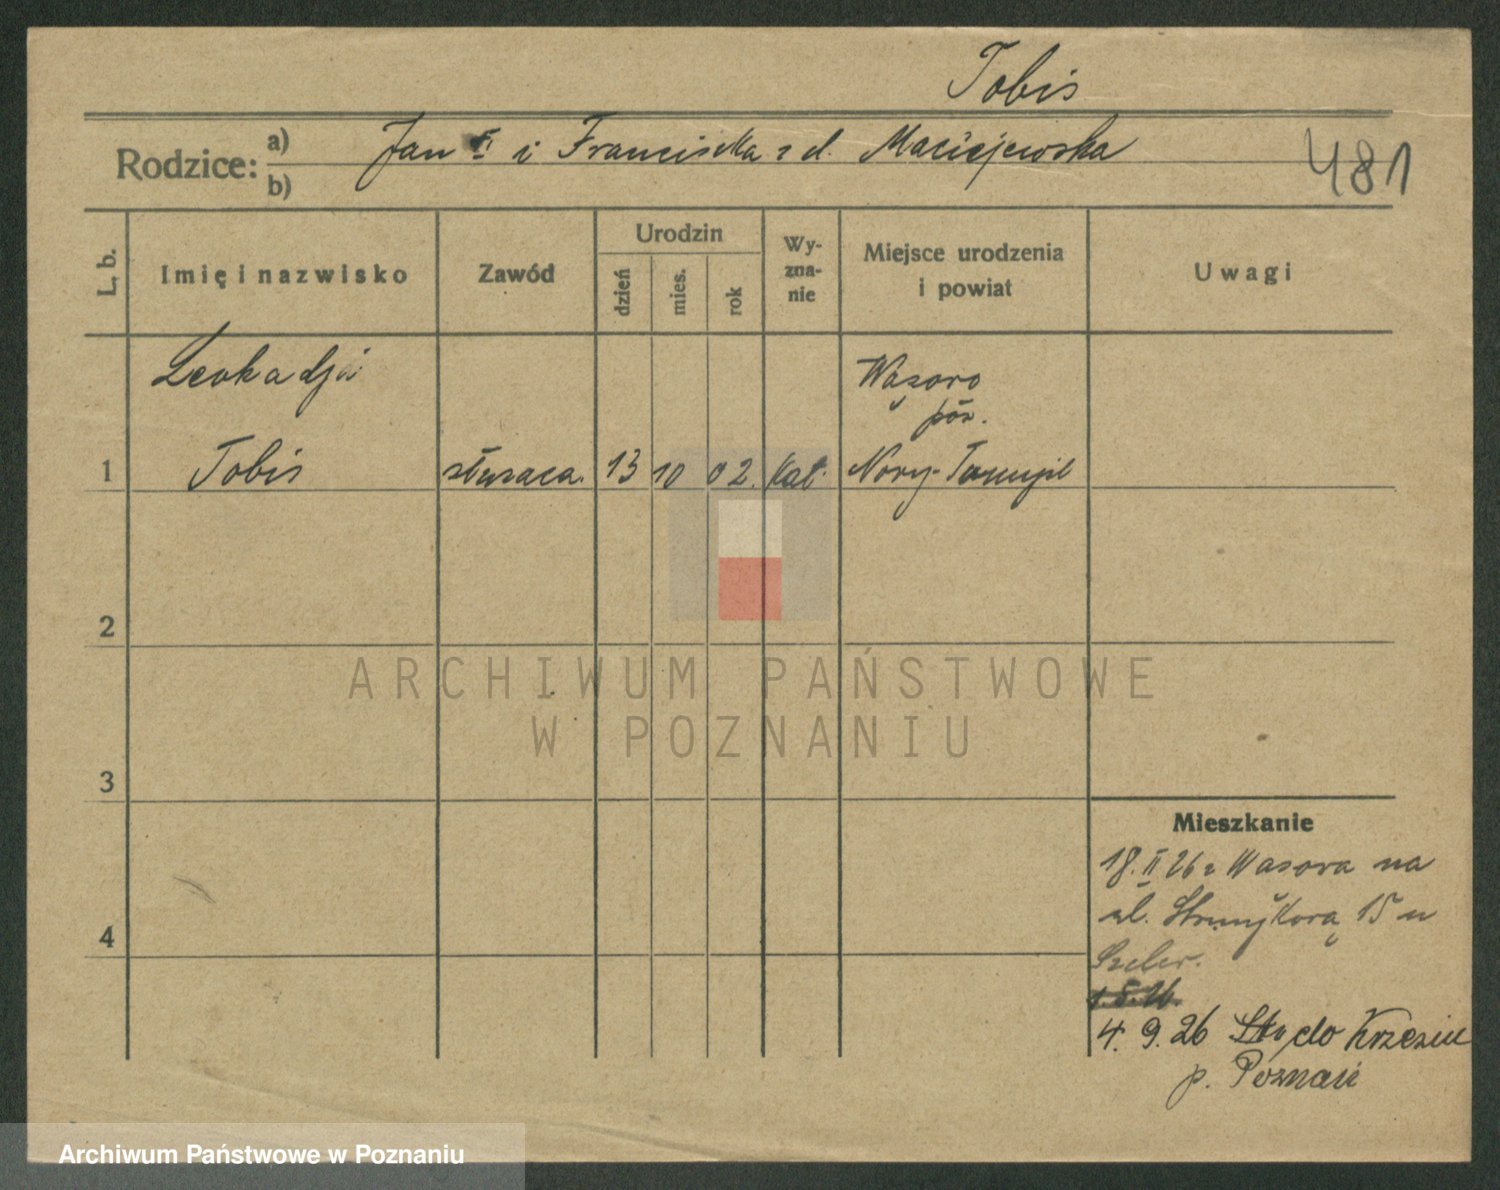 Tobis
Rodzice: a) b) Jan i Franciszka z d. Maciejewska
481
L. b.
Imię i nazwisko
Zawód
Urodzin
dzień
mies.
rok
Wy-
zna-
nie
Miejsce urodzenia
i powiat
Uwagi
Leokadja
Wąsowo
pow.
1 Tobis służąca. 13 10 02. kat. Nowy-Tomyśl
2
3
4
Mieszkanie
18.II 26 z Wąsowa na
ul. 15 u
4. 9. 26 do
p. Poznań
ARCHIWUM PAŃSTWOWE
W POZNANIU
Archiwum Państwowe w Poznaniu